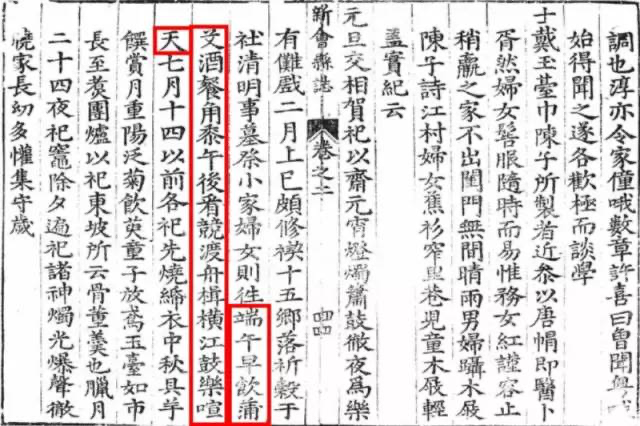 調也淳亦令家僮哦數章許喜曰曾聞與
始得聞之遂各歡極而談學
士戴玉臺巾陳子所製者近叅以唐帽即醫卜
胥然婦女髻服隨時而易惟務女紅謹容止
稍麄之家不出閨門無間晴雨男婦躡木屐
陳子詩江村婦女蕉衫窄里巷兒童木屐輕
蓋實紀云
元旦交相賀祀以齋元宵燈燭簫鼓徹夜爲樂
新會縣誌
卷之二
四四
有儺戲二月上巳頗修禊十五鄉落祈穀于
社清明事墓祭小家婦女則徃端午早飲蒲
艾酒餐角黍午後看競渡舟楫橫江鼓樂喧
天七月十四以前各祀先燒締衣中秋具芋
饌賞月重陽泛菊飲萸童子放鳶玉臺如市
長至煑團爐以祀東坡所云骨董羮也臘月
二十四夜祀竈除夕遍祀諸神燭光爆聲徹
曉家長幼多懽集守歲